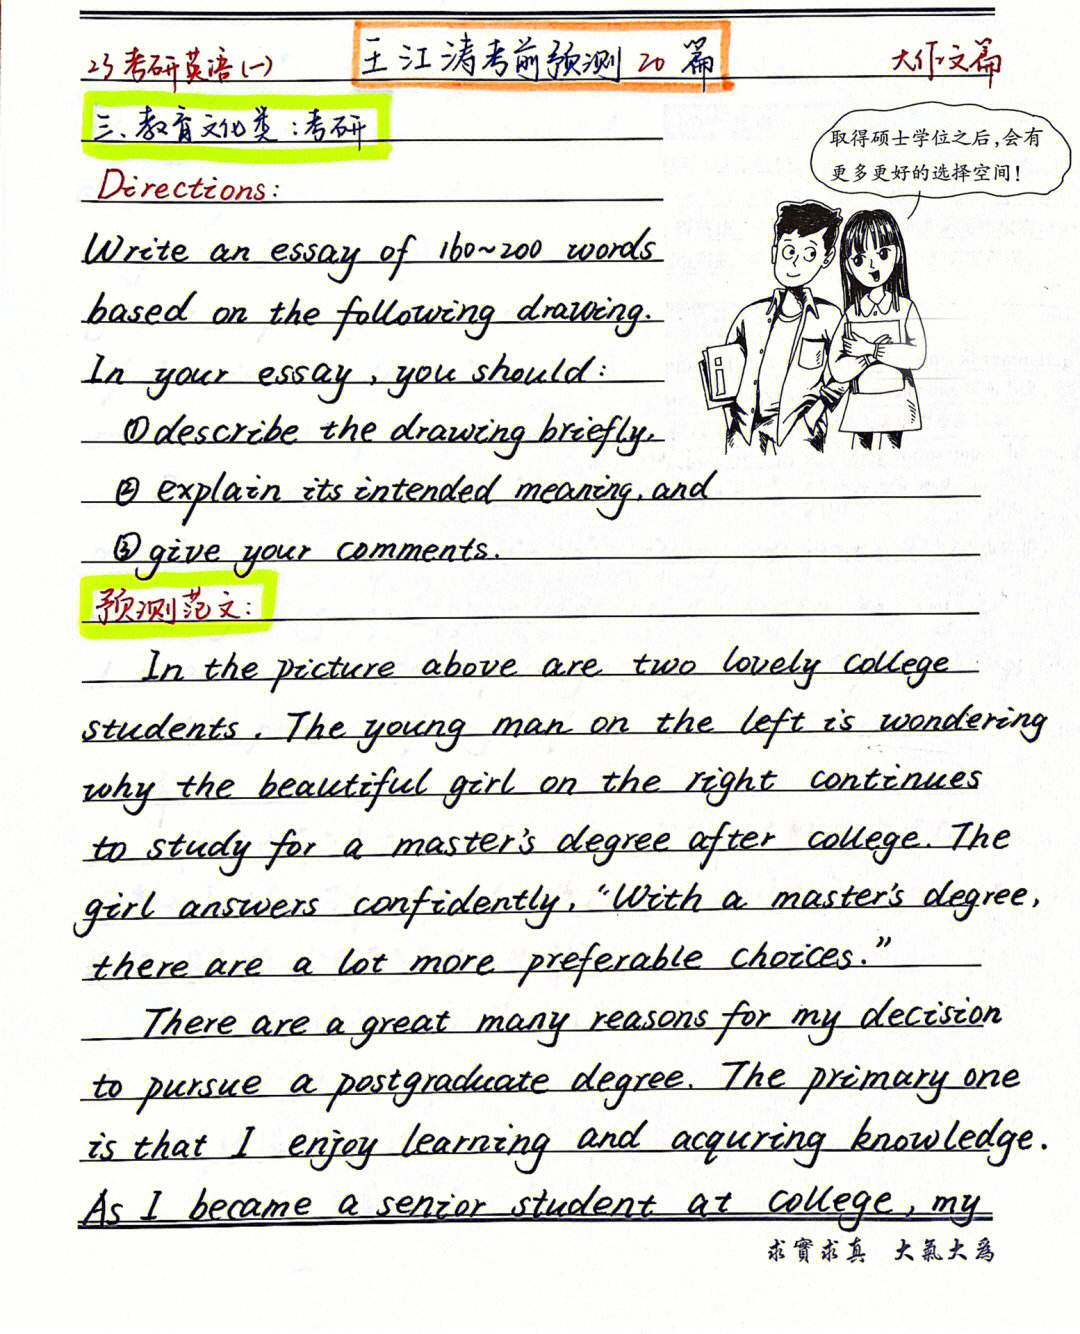 23考研英语(一)
王江涛考前预测20篇
大作文篇
三、教育文化类:考研
取得硕士学位之后,会有
更多更好的选择空间!
Directions:
Write an essay of 160~200 words
based on the following drawing.
In your essay, you should:
①describe the drawing briefly,
② explain its intended meaning, and
③give your comments.
预测范文:
In the picture above are two lovely college
students. The young man on the left is wondering
why the beautiful girl on the right continues
to study for a master's degree after college. The
girl answers confidently, "With a master's degree,
there are a lot more preferable choices."
There are a great many reasons for my decision
to pursue a postgraduate degree. The primary one
is that I enjoy learning and acquring knowledge.
As I became a senior student at college, my
求實求真 大氣大為